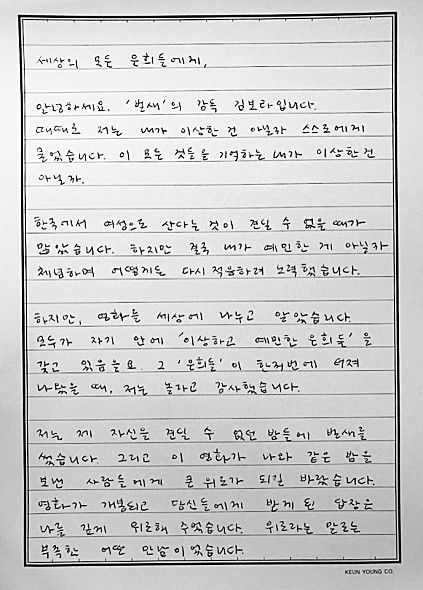 세상의 모든 은희들에게,
안녕하세요. '벌새'의 감독 김보라입니다.
때때로 저는 내가 이상한 건 아닐까 스스로에게
물었습니다. 이 모든 것들을 기억하는 내가 이상한 건
아닐까.
한국에서 여성으로 산다는 것이 견딜 수 없을 때가
많았습니다. 하지만 결국 내가 예민한 게 아닐까
체념하며 어떻게든 다시 적응하려 노력했습니다.
하지만, 영화를 세상에 나누고 알았습니다.
모두가 자기 안에 '이상하고 예민한 은희들'을
갖고 있음을요. 그 '은희들'이 한꺼번에 터져
나왔을 때, 저는 놀라고 감사했습니다.
저는 제 자신을 견딜 수 없던 밤들에 벌새를
썼습니다. 그리고 이 영화가 나와 같은 밤을
보낸 사람들에게 큰 위로가 되길 바랐습니다.
영화가 개봉되고 당신들에게 받게 된 답장은
나를 깊게 위로해 주었습니다. 위로라는 말로는
부족한 어떤 만남이었습니다.
KEUN YOUNG CO.